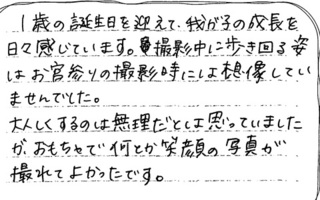 1歳の誕生日を迎えて、我が子の成長を
日々感じています。撮影中に歩き回る姿
はお宮参りの撮影時には想像してい
ませんでした。
大人しくするのは無理だとは思っていました
が、おもちゃで何とか笑顔の写真が
撮れてよかったです。